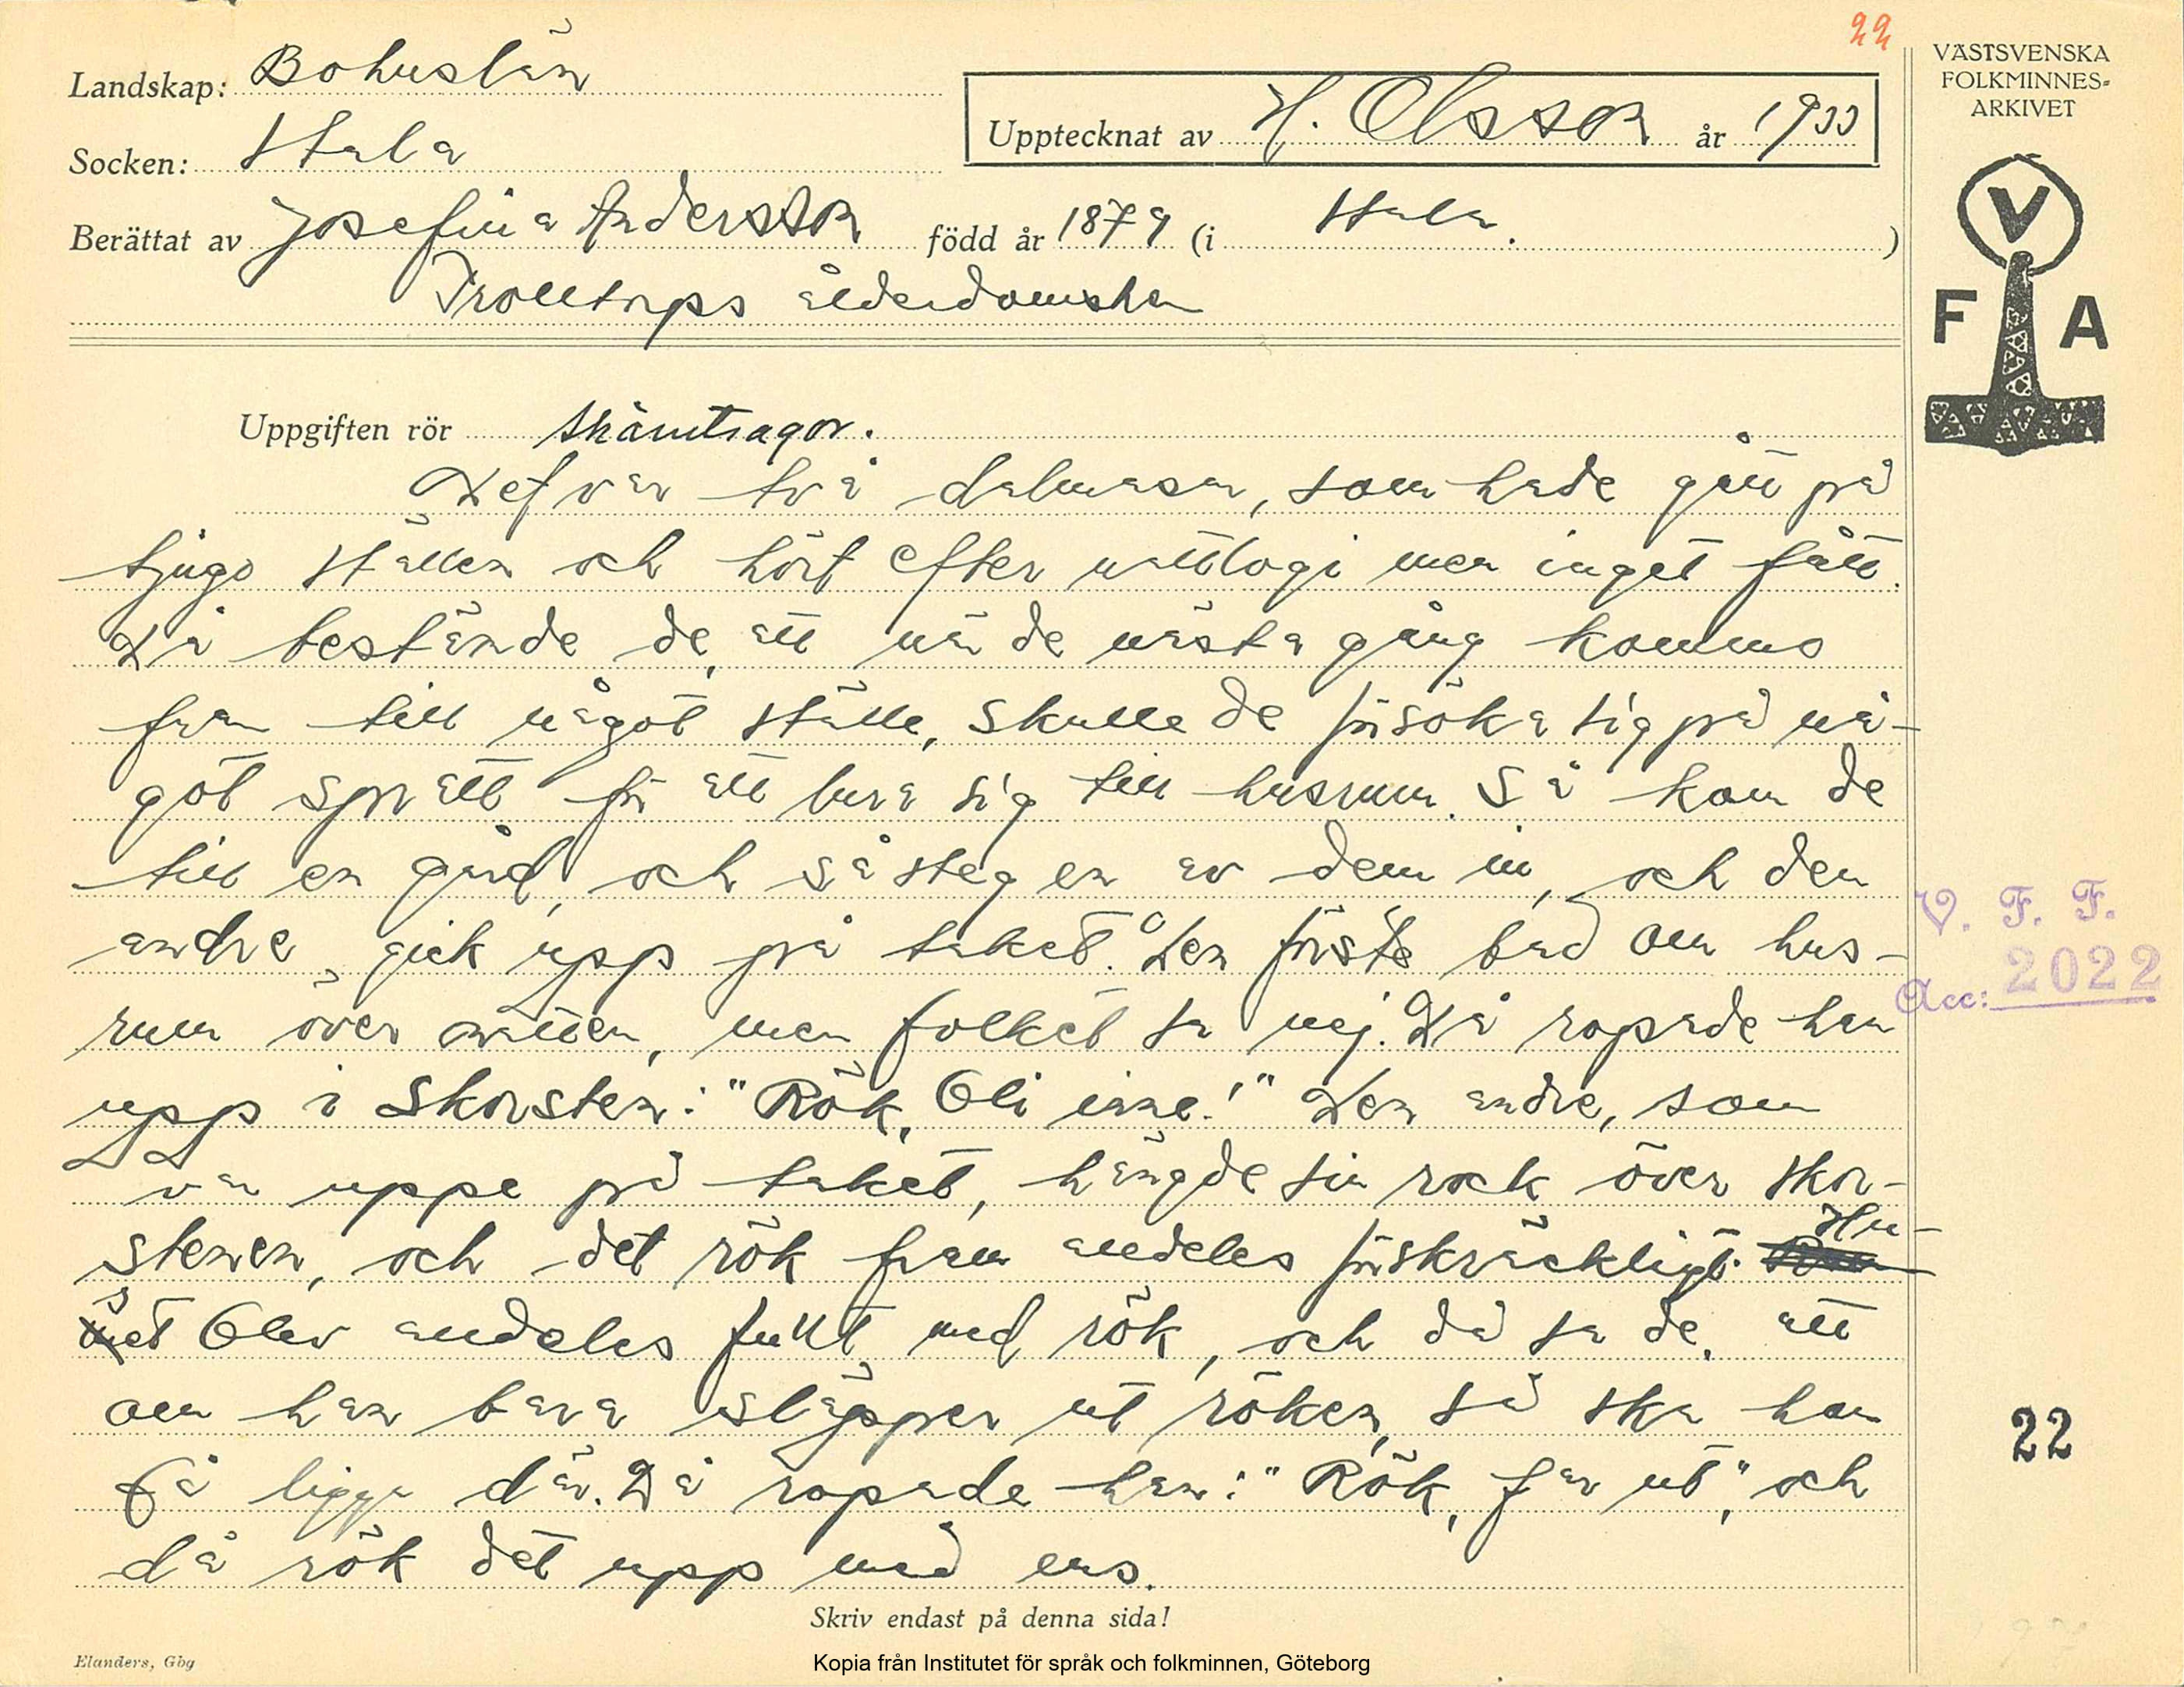 22
Landskap: Bohuslän
Socken: Stala
Upptecknat av H. Olsson år 1933
Berättat av Josefina Andersson född år 1879 (i Stala. )
Trolltorps ålderdomshem
VÄSTSVENSKA
FOLKMINNES-
ARKIVET
V
F A
Uppgiften rör skämtsagor.
Det var två dalmasar, som hade gått på
tjugo ställen och hört efter nattlogi men inget fått.
Då bestämde de, att när de nästa gång kommo
fram till något ställe, skulle de försöka sig på nå-
got spratt för att lura sig till husrum. Så kom de
till en gård, och så steg en av dem in, och den
andre gick upp på taket. Den förste bad om hus-
rum över natten, men folket sa nej. Då ropade han
upp i skorsten: "Rök, bli inne!" Den andre, som
var uppe på taket, hängde sin rock över skor-
stenen, och det rök fram alldeles förskräckligt. Hu-
set blev alldeles fullt med rök, och då sa de, att
om han bara släpper ut röken, så ska han
få ligga där. Då ropade han: "Rök, far ut", och
då rök det upp med ens.
V. F. F.
Acc: 2022
22
Skriv endast på denna sida!
Elanders, Gbg
Kopia från Institutet för språk och folkminnen, Göteborg